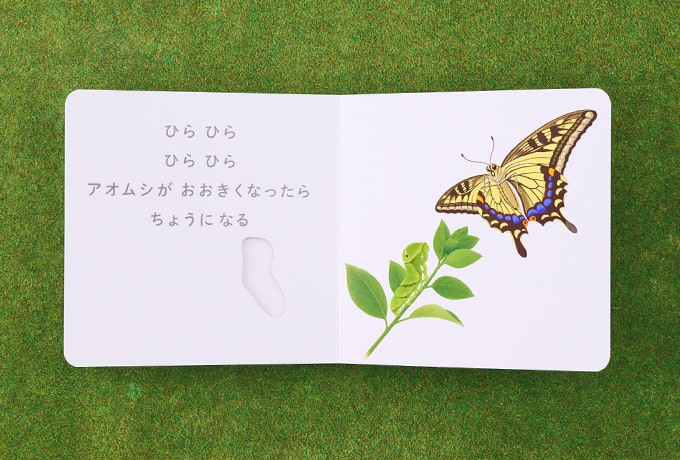 ひら ひら
ひら ひら
アオムシが おおきくなったら
ちょうに なる